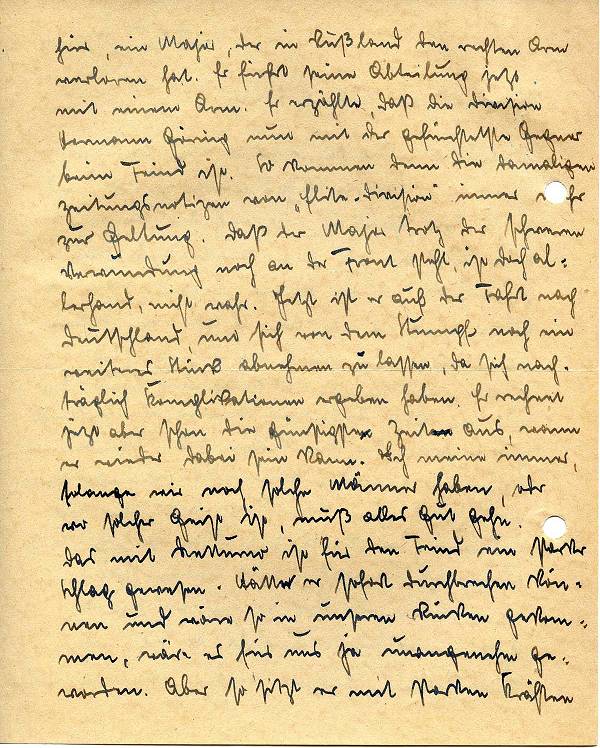 hier, ein Major, der in Rußland den rechten Arm
verloren hat. Er führt seine Abteilung jetzt
mit einem Arm. Er erzählte, daß die Division
Hermann Göring nun mit der gefürchtetste Gegner
beim Feind ist. So kommen denn die damaligen
Zeitungsnotizen von „Elite-Division" immer mehr
zur Geltung. Daß der Major trotz der schweren
Verwundung noch an der Front steht, ist doch al-
lerhand, nicht wahr. Jetzt ist er auf der Fahrt nach
Deutschland, um sich von dem Stumpf noch ein
weiteres Stück abnehmen zu lassen, da sich nach-
träglich Komplikationen ergeben haben. Er rechnet
jetzt aber schon die günstigste Zeit aus, wann
er wieder dabei sein kann. Ich meine immer,
solange wir noch solche Männer haben, oder
wo solcher Geist ist, muß alles gut gehn.
Das mit Nettuno ist für den Feind ein starker
Schlag gewesen. Hätte er sofort durchbrechen kön-
nen und wäre so in unseren Rücken gekom-
men, wäre es für uns ja unangenehm ge-
worden. Aber so sitzt er mit starken Kräften